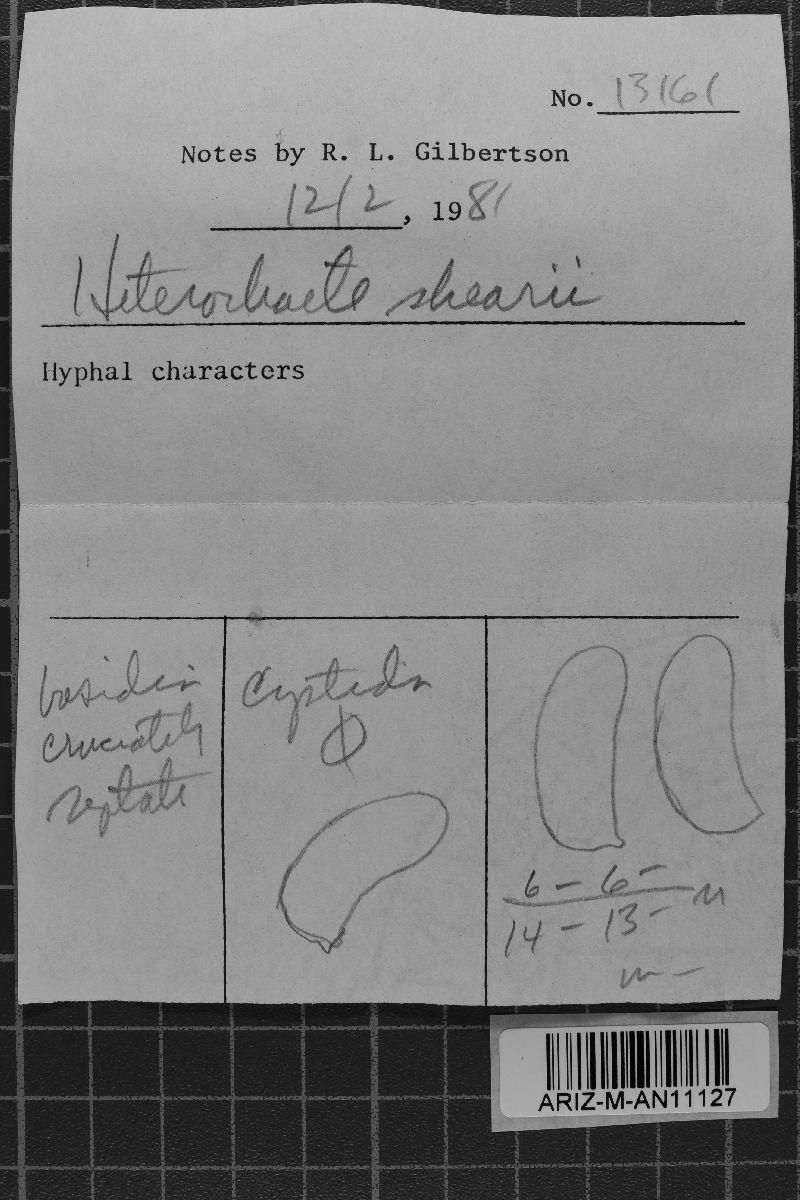 No. 13161
Notes by R. L. Gilbertson
12/2, 1981
Heterochaete shearii
Hyphal characters
basidia
cruciately
septate
Cystidia
Φ
6 – 6 –
14 – 13 –
m –
ARIZ-M-AN11127